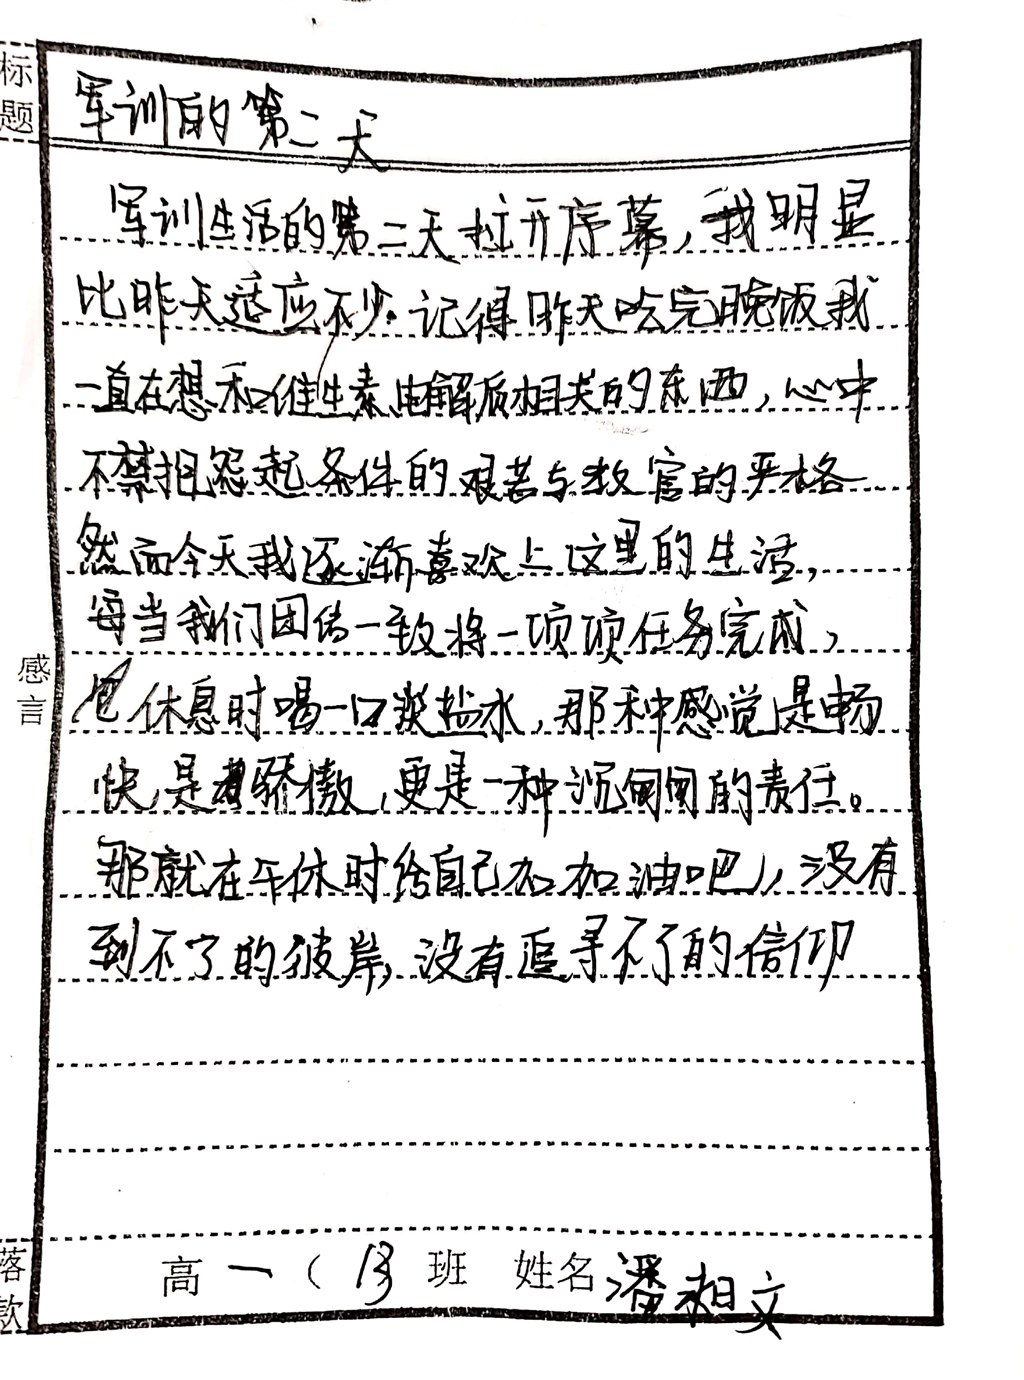 标题
军训的第二天
军训生活的第二天拉开序幕，我明显
比昨天适应不少。记得昨天吃完晚饭我
一直在想和维生素电解质相关的东西，心中
不禁抱怨起条件的艰苦与教官的严格
然而今天我逐渐喜欢上这里的生活，
每当我们团结一致将一项项任务完成，
休息时喝一口淡盐水，那种感觉是畅
快，是骄傲，更是一种沉甸甸的责任。
那就在午休时给自己加加油吧，没有
到不了的彼岸，没有追寻不了的信仰
感言
落款
高一（13班 姓名潘相文